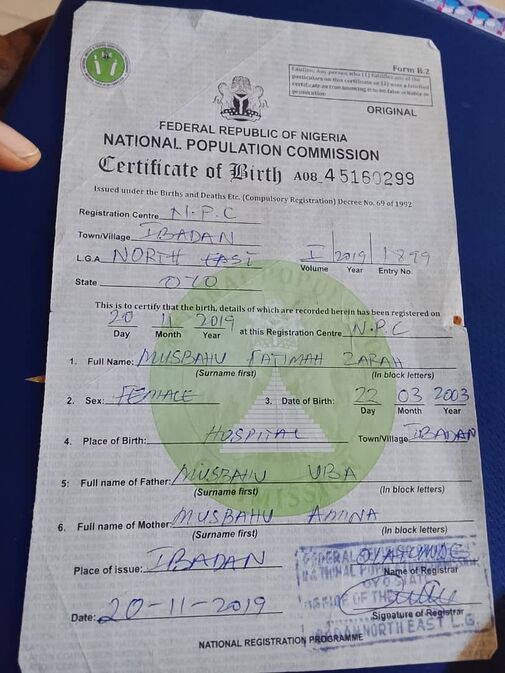 Form B.2
Caution: Any person who (1) falsifies any of the
particulars on this certificate or (2) uses a falsified
certificate as true knowing it to be false is liable to
prosecution
ORIGINAL
FEDERAL REPUBLIC OF NIGERIA
NATIONAL POPULATION COMMISSION
Certificate of Birth A08_45160299
Issued under the Births and Deaths Etc. (Compulsory Registration) Decree No. 69 of 1992
Registration Centre N.P.C
Town/Village IBADAN
L.G.A NORTH EAST I 2019 1899
Volume Year Entry No.
State OYO
This is to certify that the birth, details of which are recorded herein has been registered on
20 11 2019 at this Registration Centre N.P.C
Day Month Year
1. Full Name: MUSBAHU FATIMAH ZARAH
(Surname first) (In block letters)
2. Sex: FEMALE 3. Date of Birth: 22 03 2003
Day Month Year
4. Place of Birth: HOSPITAL Town/Village IBADAN
5: Full name of Father: MUSBAHU UBA
(Surname first) (In block letters)
6. Full name of Mother: MUSBAHU AMINA
(Surname first) (In block letters)
Place of issue: IBADAN
Name of Registrar
Date: 20-11-2019
Signature of Registrar
NATIONAL REGISTRATION PROGRAMME